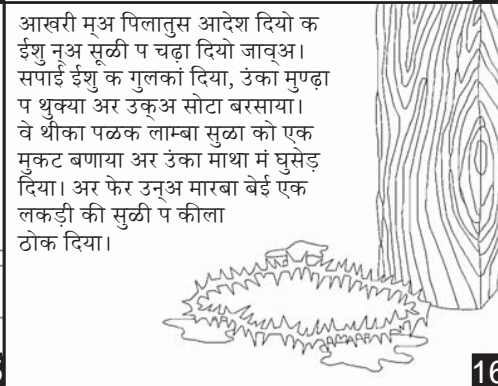 आखरी म्अ पिलातुस आदेश दियो क
ईशु न्अ सूळी प चढ़ा दियो जाव्अ।
सपाई ईशु क गुलकां दिया, उंका मुण्ढ़ा
प थुक्या अर उक्अ सोटा बरसाया।
वे थीका पळक लाम्बा सुळा को एक
मुकट बणाया अर उंका माथा मं घुसेड़
दिया। अर फेर उन्अ मारबा बेई एक
लकड़ी की सुळी प कीला
ठोक दिया।
16